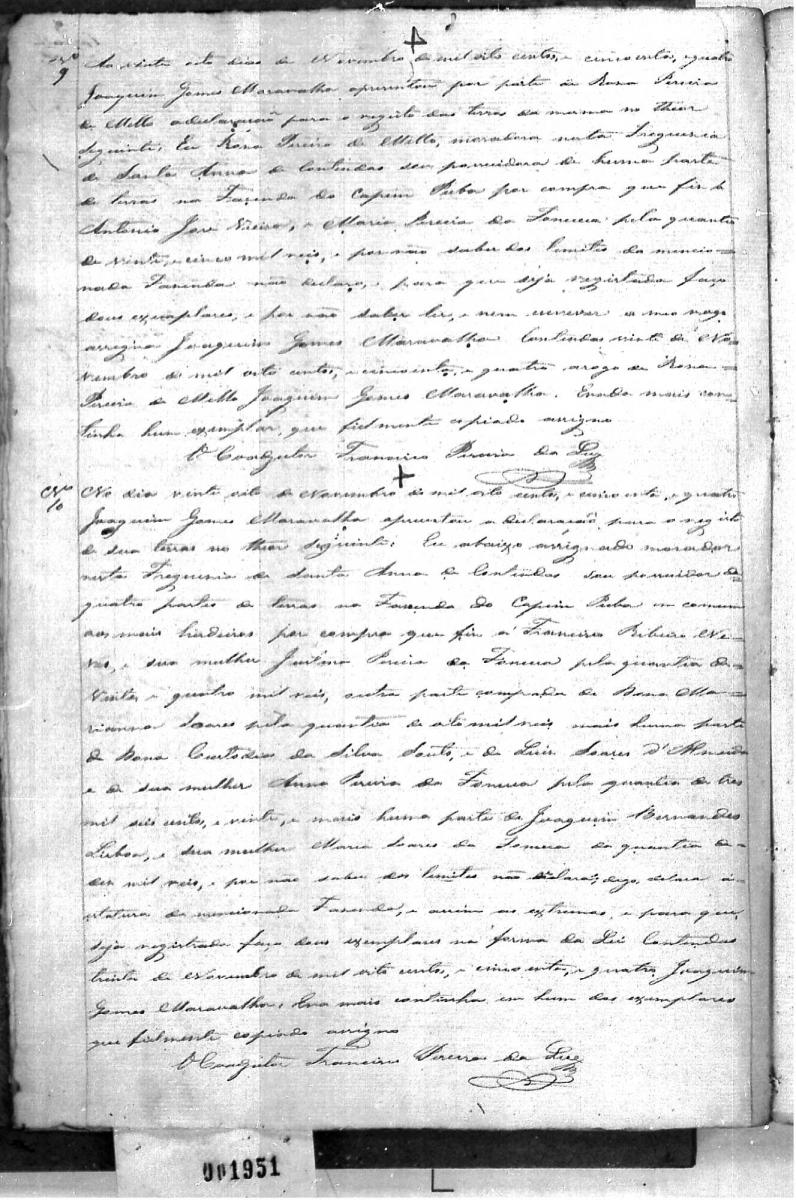 Nº 9 Ao vinte oito dias de Novembro de mil oito centos, e cincoenta, e quatro
Joaquim Gomes Maravalha aprezentou por parte de Rosa Pereira
de Mello a declaração para o registo das terras da mesma no theor
seguinte: Eu Rosa Pereira de Mello, moradora nesta Freguezia
de Santa Anna de Contendas sou possuidora de huma parte
de terras na Fazenda do Capim Puba por compra que fiz a
Antonio Jose Vieira, e Maria Pereira da Fonceca pela quantia
de vinte, e cinco mil reis, e por não saber dos limites da mencio=
nada Fazenda não declaro, e para que seja registada faço
dous exemplares, e por não saber ler, e nem escrever a meu rogo
assigna Joaquim Gomes Maravalha Contendas vinte de No=
vembro de mil oito centos, e cincoenta, e quatro arogo de Rosa=
Pereira de Mello Joaquim Gomes Maravalha. Enada mais con=
tinha hum exemplar, que fielmente copiado assigno
O Coadjutor Francisco Pereira da Luz
Nº 10 No dia vinte oito de Novembro de mil oito centos, e cincoenta, e quatro
Joaquim Gomes Maravalha aprezentou a declaração para o registo
de sua terras no theor seguinte: Eu abaixo assignado morador
nesta Freguezia de Santa Anna de Contendas sou possuidor de
quatro partes de terras na Fazenda do Capim Puba em comum
aos mais herdeiros por compra que fiz a Francisco Ribeiro Ne=
ves, e sua mulher Pereira da Fonceca pela quantia de
vinte, e quatro mil reis, outra parte comprada de Dona Ma=
rianna Soares pela quantia de oito mil reis, mais huma parte
de Dona Custodia da Silva Souto, e de Luis Soares d'Almeida
e de sua mulher Anna Pereira da Fonceca pela quantia de tres
mil seis cento, e vinte, e mais huma parte de Joaquim Bernardes
Lisboa, e sua mulher Maria Soares da Fonceca da quantia de
des mil reis, e por não saber dos limites não declara; digo, declara a
da mencionada Fazenda, e assim as extremas, e para que
seja registrada faço dous exemplares na forma da Lei Contendas
trinta de Novembro de mil oito centos, e cincoenta, e quatro, Joaquim
Gomes Maravalha. mais continha em hum dos exemplares
que fielmente copiado assigno
O Coadjutor Francisco Pereira da Luz
001951